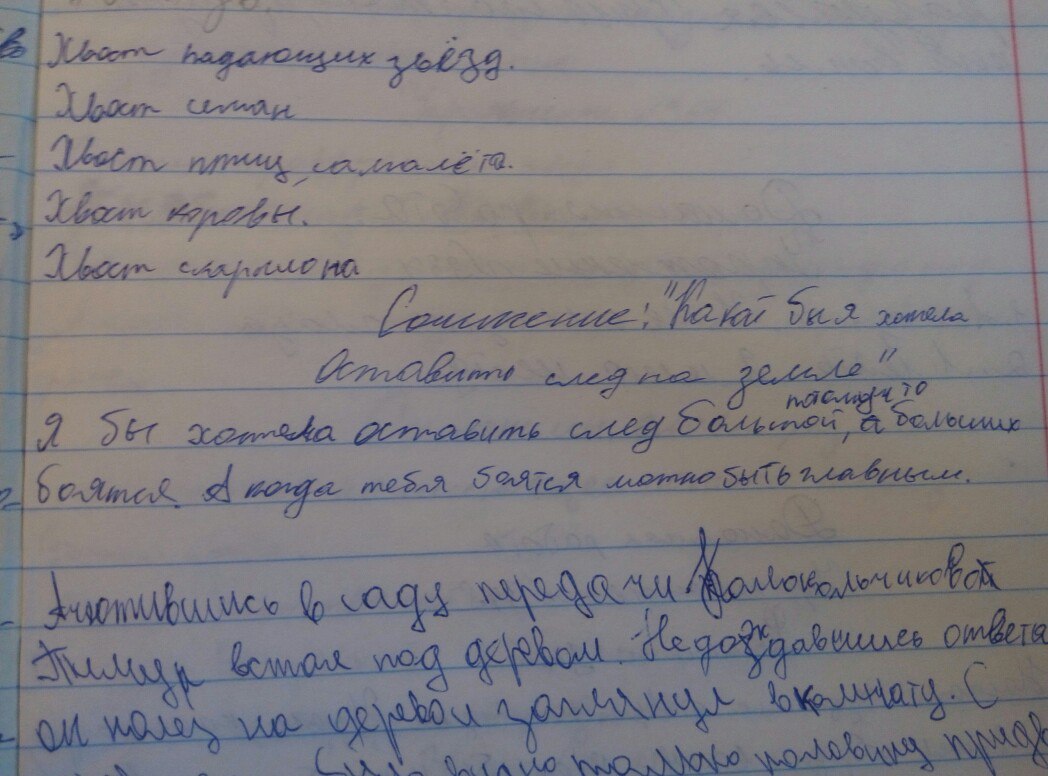 Хвост падающих звёзд.
Хвост
Хвост птиц, самалёта.
Хвост коровы.
Хвост скарпиона
Сочинение: "Какой бы я хотела
Оставить след на земле"
Я бы хотела оставить след большой, а больших
боятся. А когда тебя боятся можно быть главным.
Ачютившись в саду передачи Коломокольчиковой
Тимур встал под деревом. Недождавшись ответа
он полез на дерево и заглянул в комнату. С
было видно только половину